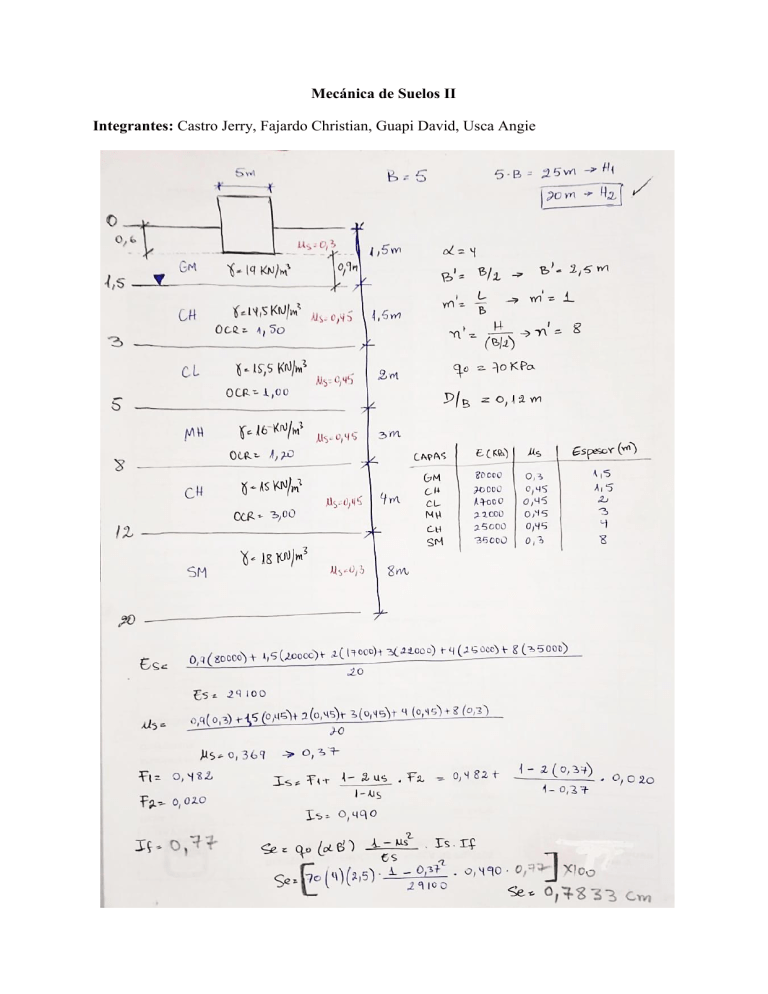 Mecánica de Suelos II
Integrantes: Castro Jerry, Fajardo Christian, Guapi David, Usca Angie
5m
B = 5
5·B = 25m → H1
20m → H2 ✓
0
0,6
μs=0,3
1,5m
GM
γ= 19 KN/m³
0,9m
1,5
CH
γ=14,5 KN/m³
μs=0,45
1,5m
OCR= 1,50
3
CL
γ= 15,5 KN/m³
μs=0,45
2m
OCR= 1,00
5
MH
γ= 16 KN/m³
μs=0,45
3m
OCR= 1,20
8
CH
γ= 15 KN/m³
μs=0,45
4m
OCR= 3,00
12
SM
γ= 18 KN/m³
μs=0,3
8m
20
α = 4
B'= B/2 → B'= 2,5 m
m'= L/B → m'= 1
n'= H/(B/2) → n'= 8
q0 = 70 KPa
D/B = 0,12 m
CAPAS | E (KPa) | μs | Espesor (m)
GM | 80000 | 0,3 | 1,5
CH | 20000 | 0,45 | 1,5
CL | 17000 | 0,45 | 2
MH | 22000 | 0,45 | 3
CH | 25000 | 0,45 | 4
SM | 35000 | 0,3 | 8
Es= 0,9(80000) + 1,5(20000)+ 2(17000)+ 3(22000) +4(25000)+ 8(35000) / 20
Es= 29100
μs= 0,9(0,3)+1,5(0,45)+2(0,45)+3(0,45)+4(0,45)+8(0,3) / 20
μs=0,369 → 0,37
F1= 0,482
F2= 0,020
Is= F1+ 1-2μs / 1-μs · F2 = 0,482+ 1-2(0,37) / 1-0,37 · 0,020
Is= 0,490
If= 0,77
Se= q0 (αB') 1-μs² / Es · Is·If
Se= [70(4)(2,5)· 1-0,37² / 29100 · 0,490· 0,77] x100
Se= 0,7833 cm